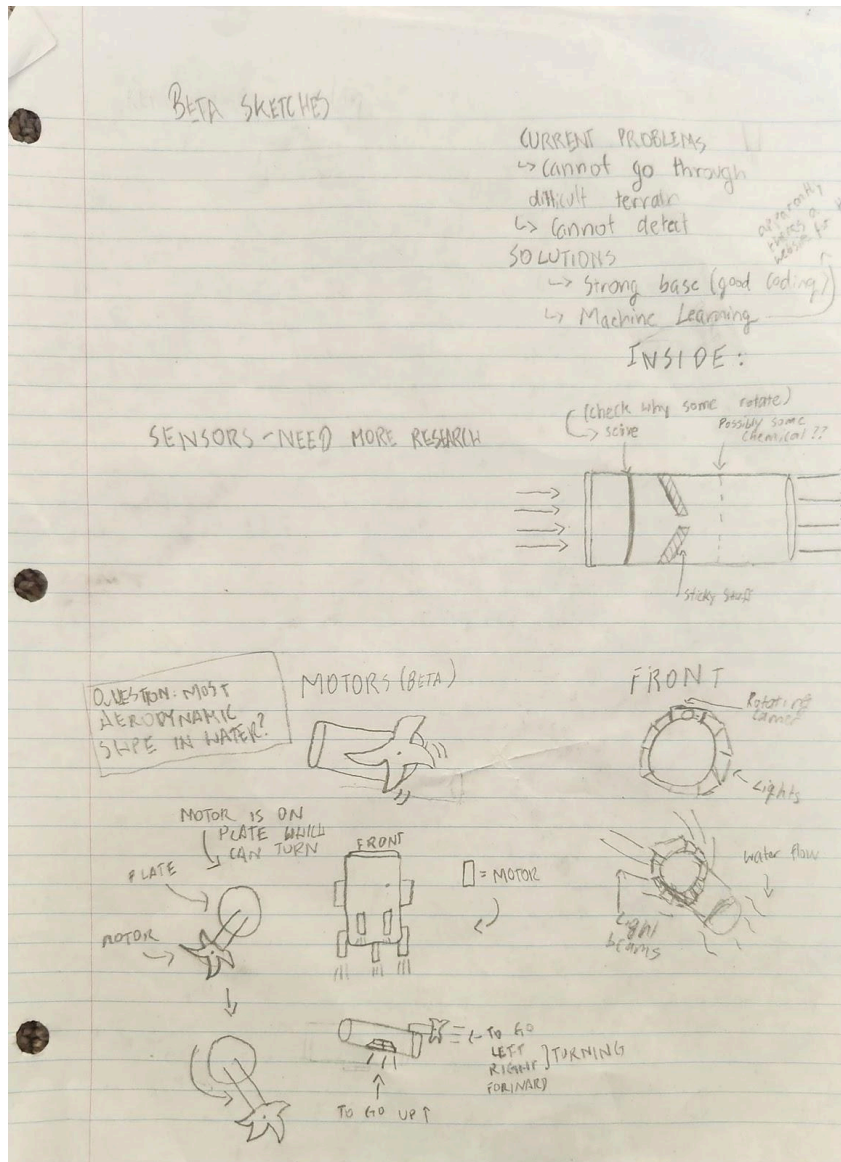 BETA SKETCHES
CURRENT PROBLEMS
↳ Cannot go through
difficult terrain
↳ Cannot detect
SOLUTIONS
↳ Strong base (good coding)
↳ Machine Learning
apparently
theres a
website for
INSIDE:
SENSORS - NEED MORE RESEARCH
(check why some rotate)
→ seive
Possibly some
chemical ??
sticky stuff
QUESTION: MOST
AERODYNAMIC
SHPE IN WATER?
MOTORS (BETA)
FRONT
Rotating
camera
Lights
MOTOR IS ON
PLATE WHICH
CAN TURN
PLATE
MOTOR
FRONT
▯ = MOTOR
water flow
Light
beams
← TO GO
LEFT
RIGHT } TURNING
FORWARD
TO GO UP ↑